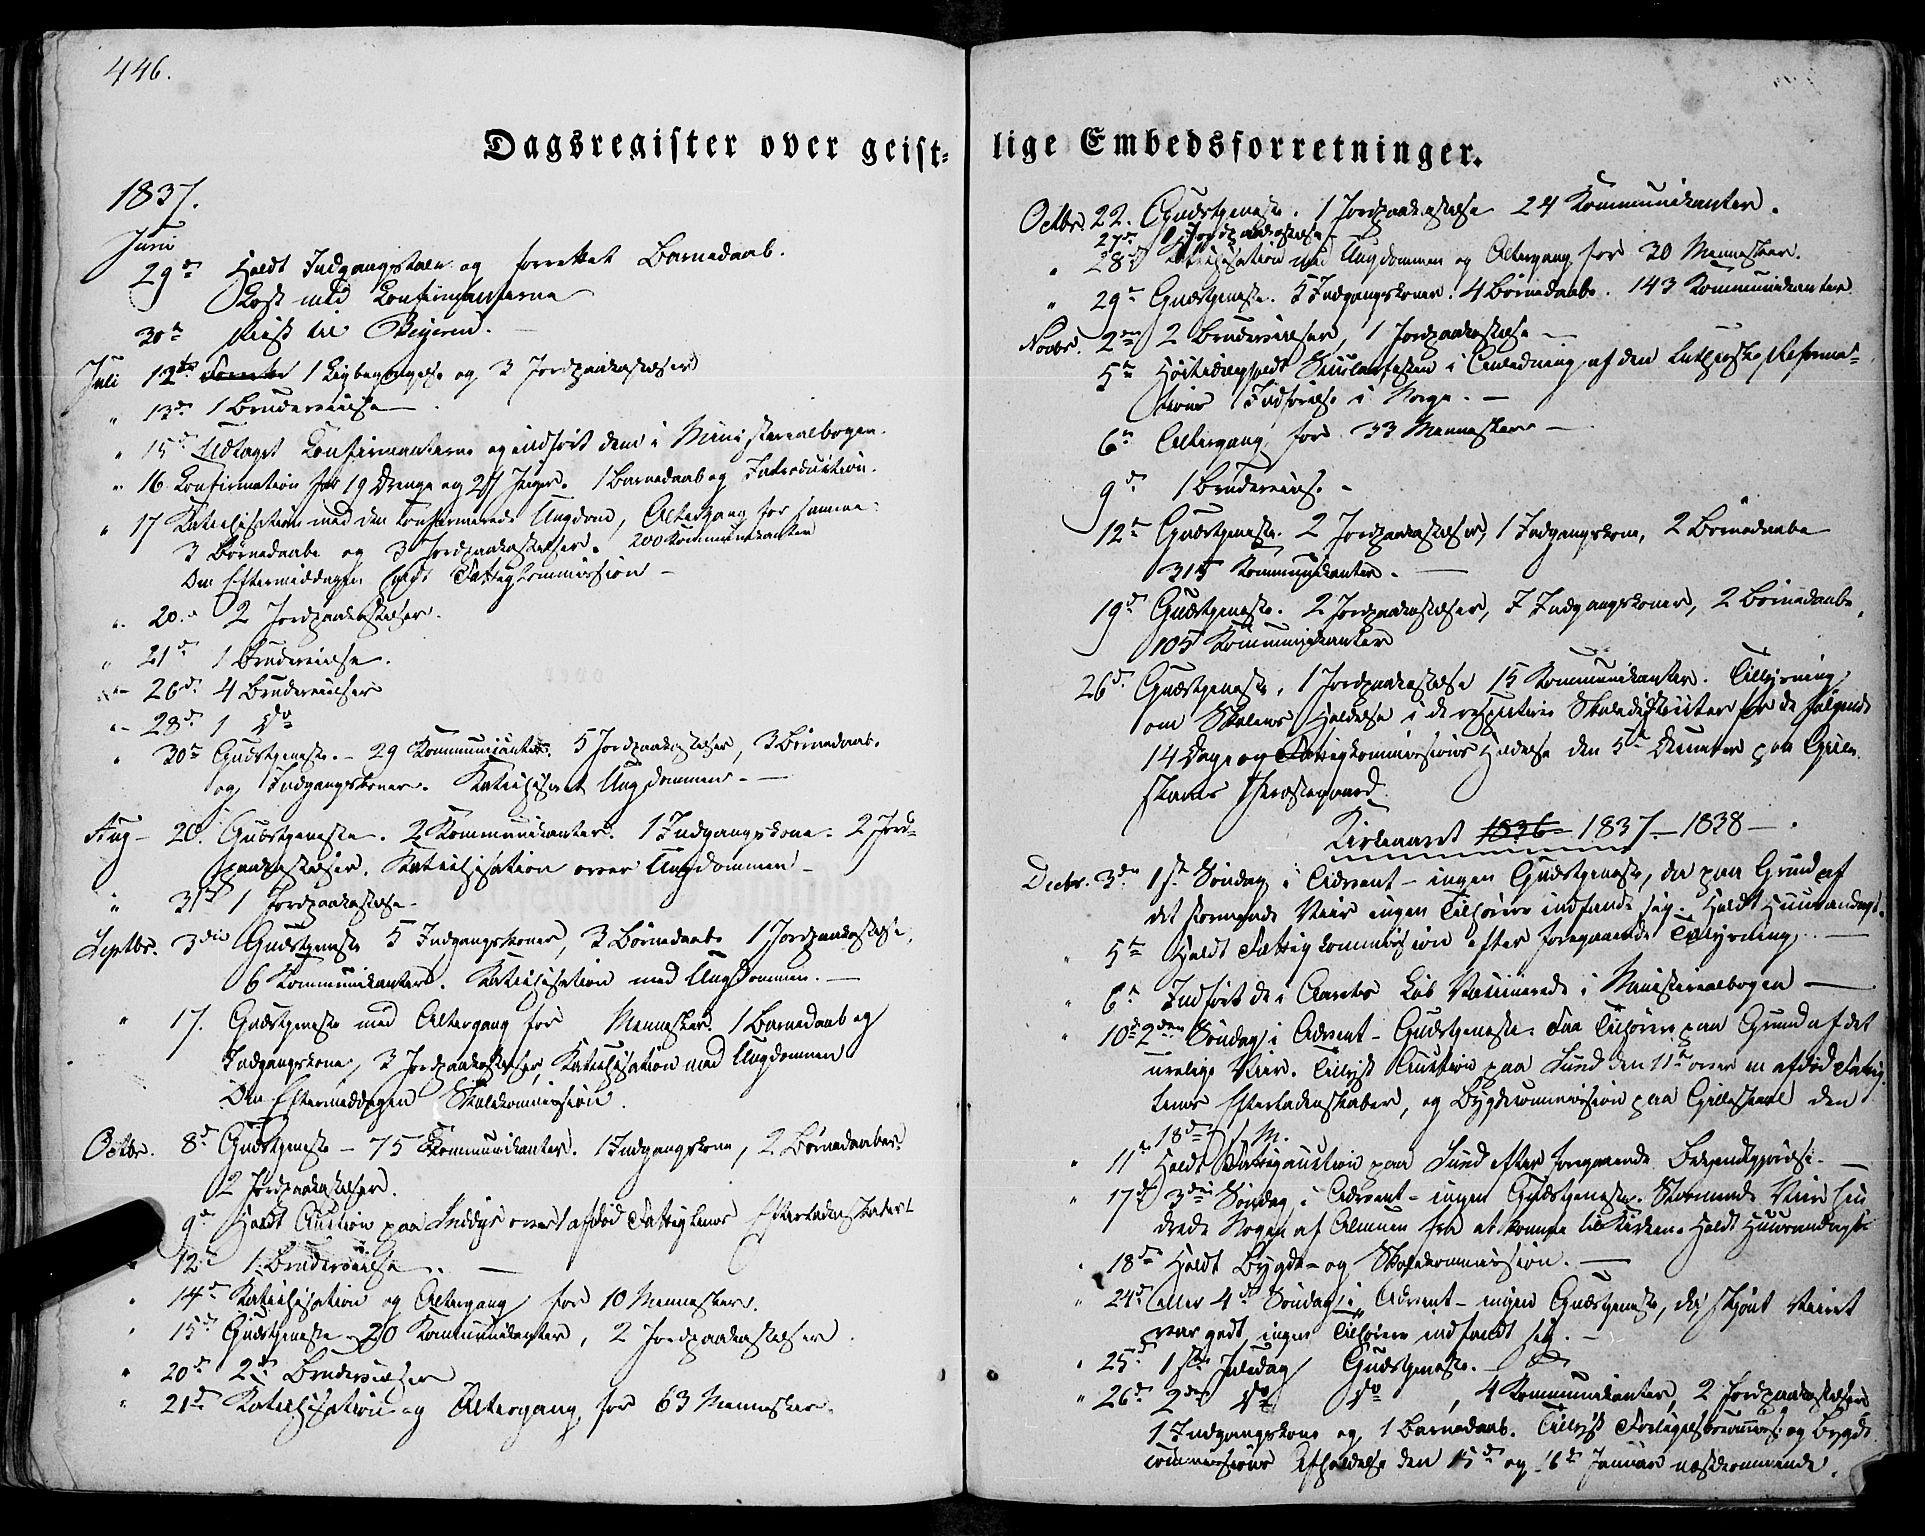 446.
Dagsregister over geist-
lige Embedsforretninger.
1837.
Juni
29de Holdt Indgangstale og forrettet Barnedaab.
Læst med Confirmanterne
30te Reist til Beieren.
Juli 12te 1 Ligbegængelse og 3 Jordpaakastelser
" 13de 1 Brudevielse
" 15de Udtaget Confirmanterne og indført dem i Ministerialbogen.
" 16 Confirmation for 19 Drenge og 21 Piger. 1 Barnedaab og Introduction.
" 17 Katechisation med den confirmerede Ungdom, Altergang for samme.
3 Børnedaabe og 3 Jordpaakastelser. 200 Kommunikanter
Om Eftermiddagen holdt Fattigkommission
" 20 2 Jordpaakastelser.
" 21de 1 Brudevielse.
" 26de 4 Brudevielser
" 28de 1 do
" 30te Gudstjeneste - 29 Kommunikanter. 5 Jordpaakastelser, 3 Børnedaab.
og Indgangskoner. Katechiseret Ungdommen.
Aug 20. Gudstjeneste. 2 Kommunikanter. 1 Indgangskone. 2 Jord-
paakastelser. Katechisation over Ungdommen
" 31te 1 Jordpaakastelse.
Septbr. 3die Gudstjeneste 5 Indgangskoner, 3 Børnedaabe 1 Jordpaakastelse,
6 Kommunikanter. Katechisation med Ungdommen.
" 17. Gudstjeneste med Altergang for Mennesker. 1 Barnedaab og
Indgangskone, 3 Jordpaakastelser, Katechisation med Ungdommen
Om Eftermiddagen Skolekommission.
Octbr. 8de Gudstjeneste - 75 Kommunikanter. 1 Indgangskone, 2 Børnedaaber.
2 Jordpaakastelser.
9de Holdt Auction paa over afdød Fattiglems Efterladenskaber
" 12te 1 Brudevielse
" 14de Katechisation og Altergang for 10 Mennesker.
" 15de Gudstjeneste 20 Kommunikanter, 2 Jordpaakastelser.
" 20de 2 Brudevielser
" 21de Katechisation og Altergang for 63 Mennesker.
Octbr. 22. Gudstjeneste. 1 Jordpaakastelse 24 Kommunikanter.
27de 1 Jordpaakastelse
" 28de Katechisation med Ungdommen og Altergang for 30 Mennesker.
" 29de Gudstjeneste. 5 Indgangskoner. 4 Børnedaabe. 143 Kommunikanter
Novbr. 2den 2 Brudevielser, 1 Jordpaakastelse
5te Høitideligholdt Secularfesten i Anledning af den Lutherske Reforma-
tions Indførelse i Norge.
6te Altergang for 33 Mennesker
9de 1 Brudevielse
12te Gudstjeneste. 2 Jordpaakastelser, 1 Indgangskone, 2 Børnedaabe
315 Kommunikanter.
19de Gudstjeneste. 2 Jordpaakastelser, 7 Indgangskoner, 2 Børnedaabe,
105 Kommunikanter
26de Gudstjeneste, 1 Jordpaakastelse 15 Kommunikanter. Tillysning
om Skolens Holdelse i de respective Skoledistricter for de følgende
14 Dage og Fattigkommissions Holdelse den 5te December paa Gille-
skaals Præstegaard.
Kirkeaaret 1836 1837-1838
Decbr. 3die 1ste Søndag i Advent - ingen Gudstjeneste, da paa Grund af
det stormende Veir ingen Tilhører indfandt sig. Holdt Huusandagt.
" 5te Holdt Fattigkommission efter foregaaende Tillysning.
" 6te Indført de i Aarets Løb Vaccinerede i Ministerialbogen
" 10de 2den Søndag i Advent - Gudstjeneste. Faa Tilhørere paa Grund af det
urolige Veir. Tillyst Auction paa Sund den 11te over en afdød Fattig-
lems Efterladenskaber, og Bygdecommission paa Gilleskaal den
18de d. M.
" 11te Holdt Fattigauction paa Sund efter foregaaende Bekjendtgjørelse.
" 17de 3die Søndag i Advent - ingen Gudstjeneste. Stormende Veir hin-
drede Nogen af Almuen fra at komme til Kirken. Holdt Huusandagt
" 18de Holdt Bygde- og Skolekommission.
" 24de eller 4de Søndag i Advent - ingen Gudstjeneste, da skjønt Veiret
var godt, ingen Tilhører indfandt sig.
" 25de 1ste Juledag Gudstjeneste.
" 26de 2den do do, 4 Kommunikanter, 2 Jordpaakastelser
1 Indgangskone og 1 Barnedaab. Tillyst Forligelsescommiss: og Bygde
commissions Afholdelse den 15de og 16de Januar næstkommende.